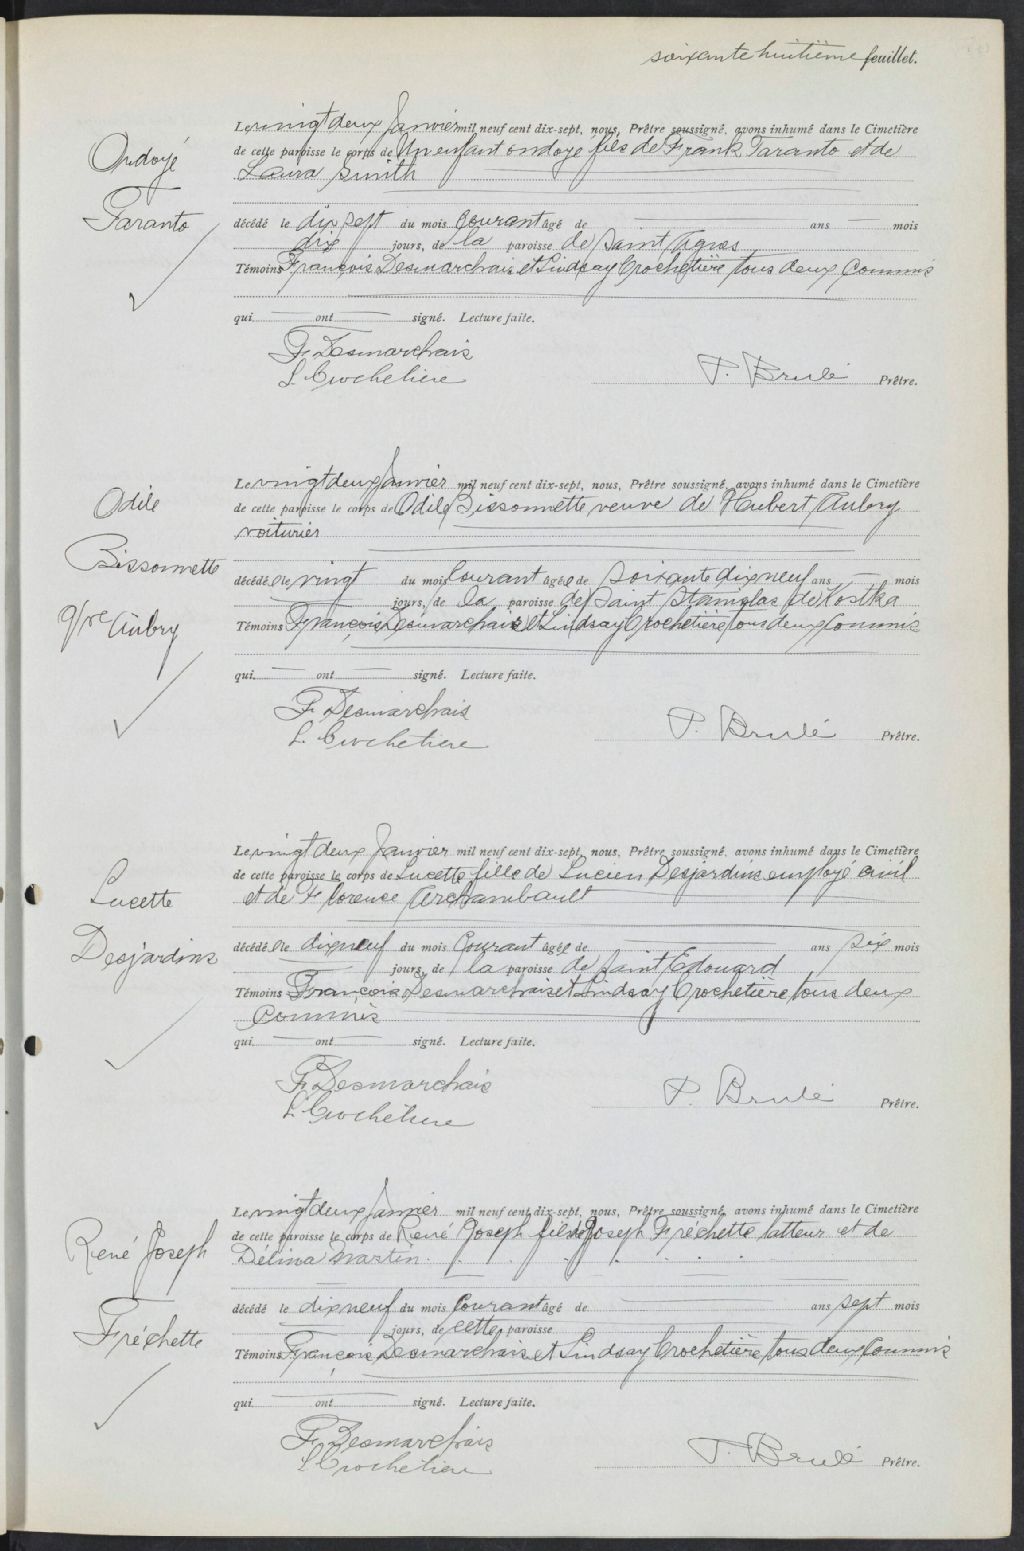 soixante huitième feuillet.
Ondoyé
Taranto
Le vingt deux Janvier mil neuf cent dix-sept, nous, Prêtre soussigné, avons inhumé dans le Cimetière
de cette paroisse le corps de Un enfant ondoyé fils de Frank Taranto et de
Laura Smith
décédé le dix sept du mois Courant âgé de ans mois
dix jours, de la paroisse de Saint Agnes
Témoins François Desmarchais et Lindsay Crochetière tous deux Commis
qui ont signé. Lecture faite.
F. Desmarchais
L. Crochetiere
P. Brulé Prêtre.
Odile
Bissonnette
Vve Aubry
Le vingt deux Janvier mil neuf cent dix-sept, nous, Prêtre soussigné, avons inhumé dans le Cimetière
de cette paroisse le corps de Odile Bissonnette veuve de Hubert Aubry
voiturier
décédée le vingt du mois Courant âgée de soixante dixneuf ans mois
jours, de la paroisse de Saint Stanislas de Kostka
Témoins François Desmarchais et Lindsay Crochetière tous deux Commis
qui ont signé. Lecture faite.
F. Desmarchais
L. Crochetiere
P. Brulé Prêtre.
Lucette
Desjardins
Le vingt deux Janvier mil neuf cent dix-sept, nous, Prêtre soussigné, avons inhumé dans le Cimetière
de cette paroisse le corps de Lucette fille de Lucien Desjardins employé civil
et de Florence Archambault
décédée le dixneuf du mois Courant âgée de ans six mois
jours, de la paroisse de Saint Edouard
Témoins François Desmarchais et Lindsay Crochetière tous deux
Commis
qui ont signé. Lecture faite.
F. Desmarchais
L. Crochetiere
P. Brulé Prêtre.
René Joseph
Fréchette
Le vingt deux Janvier mil neuf cent dix-sept, nous, Prêtre soussigné, avons inhumé dans le Cimetière
de cette paroisse le corps de René Joseph fils de Joseph Fréchette latteur et de
Délina Martin
décédé le dixneuf du mois Courant âgé de ans sept mois
jours, de cette paroisse
Témoins François Desmarchais et Lindsay Crochetière tous deux Commis
qui ont signé. Lecture faite.
F. Desmarchais
L Crochetiere
P. Brulé Prêtre.